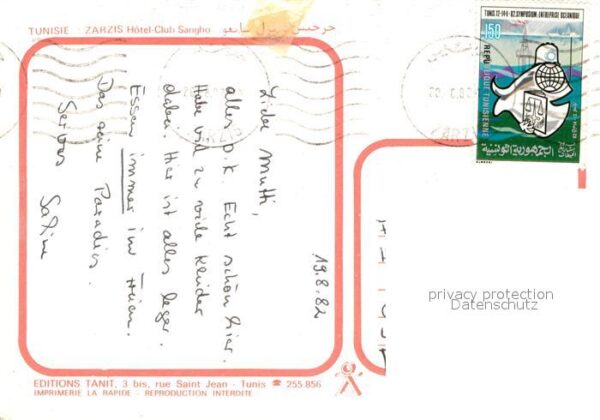 TUNISIE ZARZIS Hôtel-Club Sangho
TUNIS 12-14-5-82 SYMPOSIUM: ENTREPRISE OCEANIQUE
150
REPUBLIQUE TUNISIENNE
الجمهورية التونسية
19.8.82
Liebe Mutti,
alles O.K. Echt schön hier.
Habe viel zu viele Kleider
dabei. Hier ist alles leger.
Essen immer im Freien.
Das reine Paradies.
Servus
privacy protection
Datenschutz
EDITIONS TANIT, 3 bis, rue Saint Jean - Tunis ☎ 255.856
IMPRIMERIE LA RAPIDE - REPRODUCTION INTERDITE